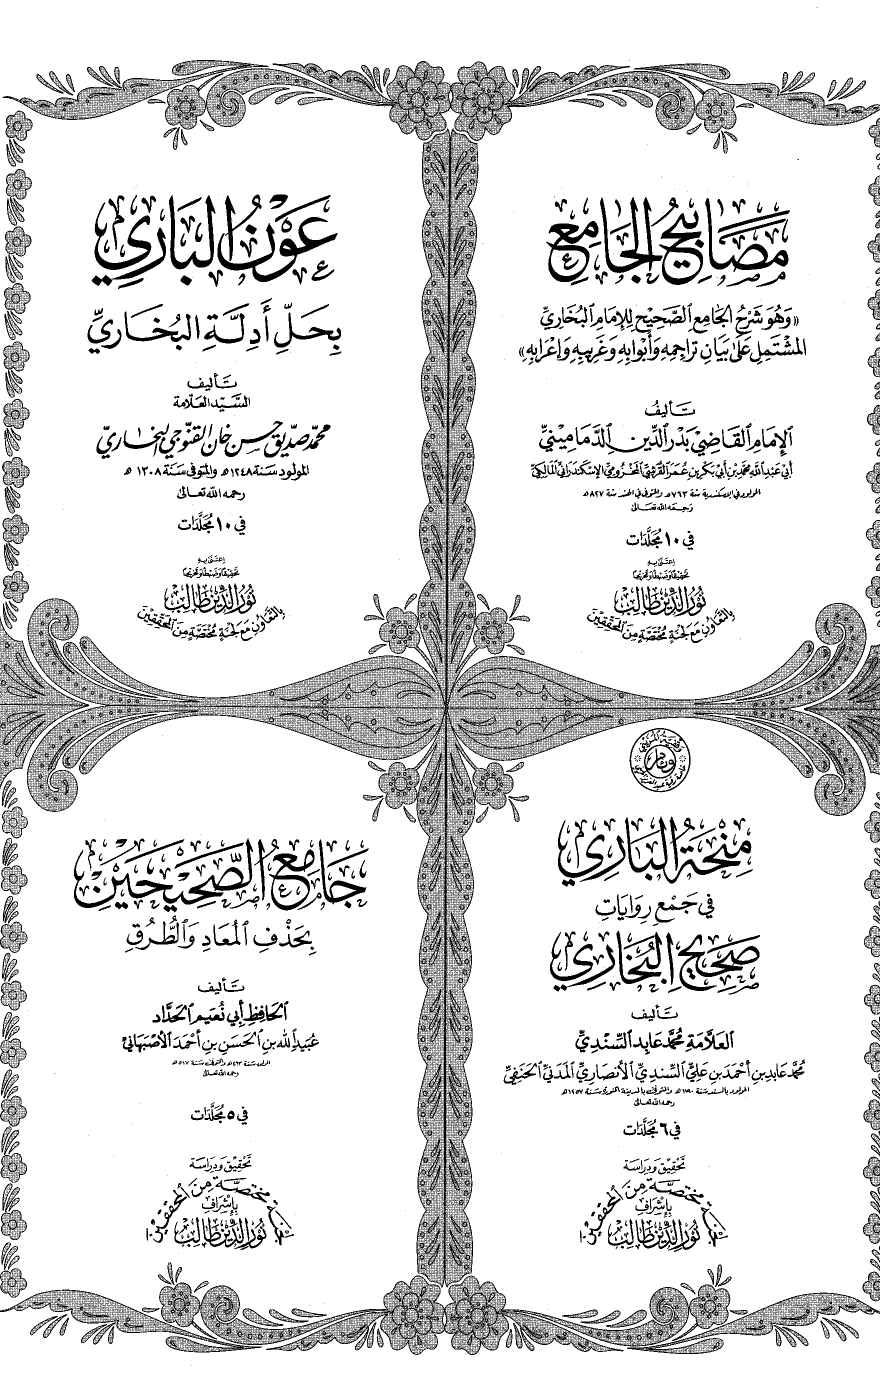 مَصَابِيحُ الْجَامِعِ
«وَهُوَ شَرْحُ الْجَامِعِ الصَّحِيحِ لِلْإِمَامِ الْبُخَارِيِّ
الْمُشْتَمِلِ عَلَىٰ بَيَانِ تَرَاجِمِهِ وَأَبْوَابِهِ وَغَرِيبِهِ وَإِعْرَابِهِ»
تَأليفُ
الإِمَامِ الْقَاضِي بَدْرِ الدِّينِ الدَّمَامِينِيِّ
أَبِي عَبْدِ اللَّهِ مُحَمَّدِ بْنِ أَبِي بَكْرِ بْنِ عُمَرَ الْقُرَشِيِّ الْمَخْزُومِيِّ الإِسْكَنْدَرَانِيِّ الْمَالِكِيِّ
المولود في الإسكندرية سنة ٧٦٣هـ والمتوفى في الهند سنة ٨٢٧هـ
رحمه الله تعالى
في ١٠ مُجَلَّدَات
اعتنى به
تحقيقًا وضبطًا وتخريجًا
نُورُ الدِّينِ طَالِب
بِالتَّعَاوُنِ مَعَ لَجْنَةٍ مُخْتَصَّةٍ مِنَ الْمُحَقِّقِينَ
عَوْنُ الْبَارِي
بِحَلِّ أَدِلَّةِ الْبُخَارِيِّ
تَأليف
السَّيِّد العَلَّامَة
محمّد صدّيق حسن خان القنّوجي البخاريّ
المولود سَنة ١٢٤٨هـ والمتوفى سَنة ١٣٠٨ هـ
رحمه الله تعالى
في ١٠ مُجَلَّدَات
اعتنى به
تحقيقًا وضبطًا وتخريجًا
نُورُ الدِّينِ طَالِب
بِالتَّعَاوُنِ مَعَ لَجْنَةٍ مُخْتَصَّةٍ مِنَ الْمُحَقِّقِينَ
مِنْحَةُ الْبَارِي
فِي جَمْعِ رِوَايَاتِ
صَحِيحِ الْبُخَارِي
تَأليف
العَلَّامَةِ مُحَمَّد عَابِد السِّنْدِيّ
مُحَمَّد عَابِد بْنِ أَحْمَد بْنِ عَلِيٍّ السِّنْدِيِّ الأَنْصَارِيِّ الْمَدَنِيِّ الْحَنَفِيّ
المولود بالسند سنة ١١٩٠هـ والمتوفى بالمدينة المنورة سنة ١٢٥٧هـ
رحمه الله تعالى
في ٦ مُجَلَّدَات
تَحْقِيق وَدِرَاسَة
لجنة مختصّة مِنَ المحققين
بِإشْرَافِ
نُورِ الدِّينِ طَالِب
جَامِعُ الصَّحِيحَيْنِ
بِحَذْفِ الْمُعَادِ وَالطُّرُقِ
تَأليف
الحَافِظِ أَبِي نُعَيْمٍ الحَدَّاد
عُبَيْدِ اللهِ بْنِ الْحَسَنِ بْنِ أَحْمَدَ الأَصْبَهَانِيِّ
المولود سَنة ٤٦٣هـ والمتوفى سَنة ٥١٧هـ
رحمه الله تعالى
في ٥ مُجَلَّدَات
تَحْقِيق وَدِرَاسَة
لجنة مختصّة مِنَ المحققين
بِإشْرَافِ
نُورِ الدِّينِ طَالِب